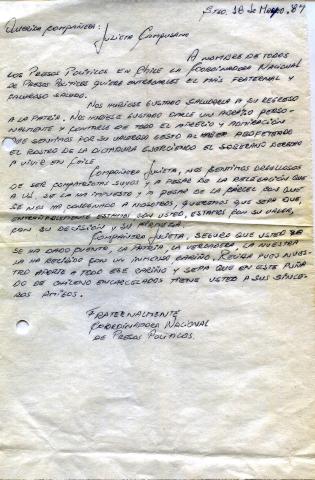 Stgo. 18 de Mayo '87
Querida compañera:
Julieta Campusano
A nombre de todos
los Presos Políticos en Chile la Coordinadora Nacional
de Presos Políticos quiere entregarle el más fraternal y
caluroso saludo.
Nos hubiese gustado saludarla a su regreso
a la patria. Nos hubiese gustado darle un abrazo perso-
nalmente y contarle de todo el cariño y admiración
que sentimos por su valeroso gesto al haber abofeteado
el rostro de la dictadura ejerciendo el soberano derecho
a vivir en Chile
Compañera Julieta, nos sentimos orgullosos
de ser compatriotas suyos y a pesar de la relegación que
a ud. se la ha impuesto y a pesar de la cárcel con que
se nos ha condenado a nosotros, queremos que sepa que,
estamos con usted, estamos con su valor,
con su decisión y su
Compañera Julieta, seguro que usted ya
se ha dado cuenta, la patria, la verdadera, la nuestra
la ha recibido con un inmenso cariño. Reciba pues nues-
tro aporte a todo ese cariño y sepa que en este puña-
do de chilenos encarcelados tiene usted a sus since-
ros amigos.
Fraternalmente
Coordinadora Nacional
de Presos Políticos.